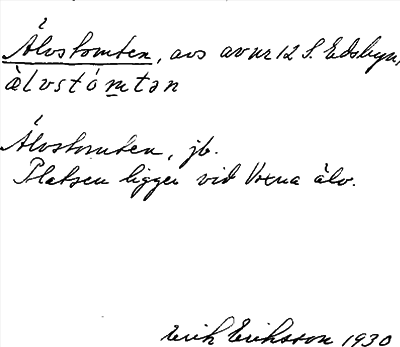 Älvstomten, avs av nr 12 S. Edsbyn,
ä̀lvstómtən
Älvstomten, jb.
Platsen ligger vid Voxna älv.
Erik Eriksson 1930